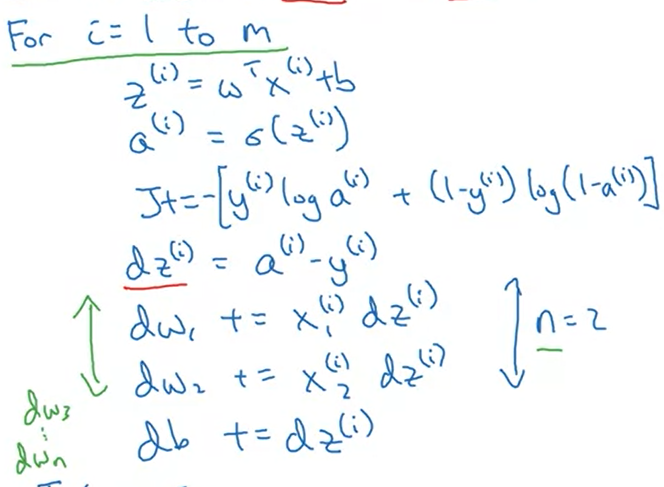 For i = 1 to m
z⁽ⁱ⁾ = ωᵀx⁽ⁱ⁾+b
a⁽ⁱ⁾ = σ(z⁽ⁱ⁾)
J+=-[y⁽ⁱ⁾ log a⁽ⁱ⁾ + (1-y⁽ⁱ⁾) log(1-a⁽ⁱ⁾)]
dz⁽ⁱ⁾ = a⁽ⁱ⁾-y⁽ⁱ⁾
dω₁ += x₁⁽ⁱ⁾ dz⁽ⁱ⁾
n=2
dω₂ += x₂⁽ⁱ⁾ dz⁽ⁱ⁾
db += dz⁽ⁱ⁾
dω₃
⋮
dωₙ